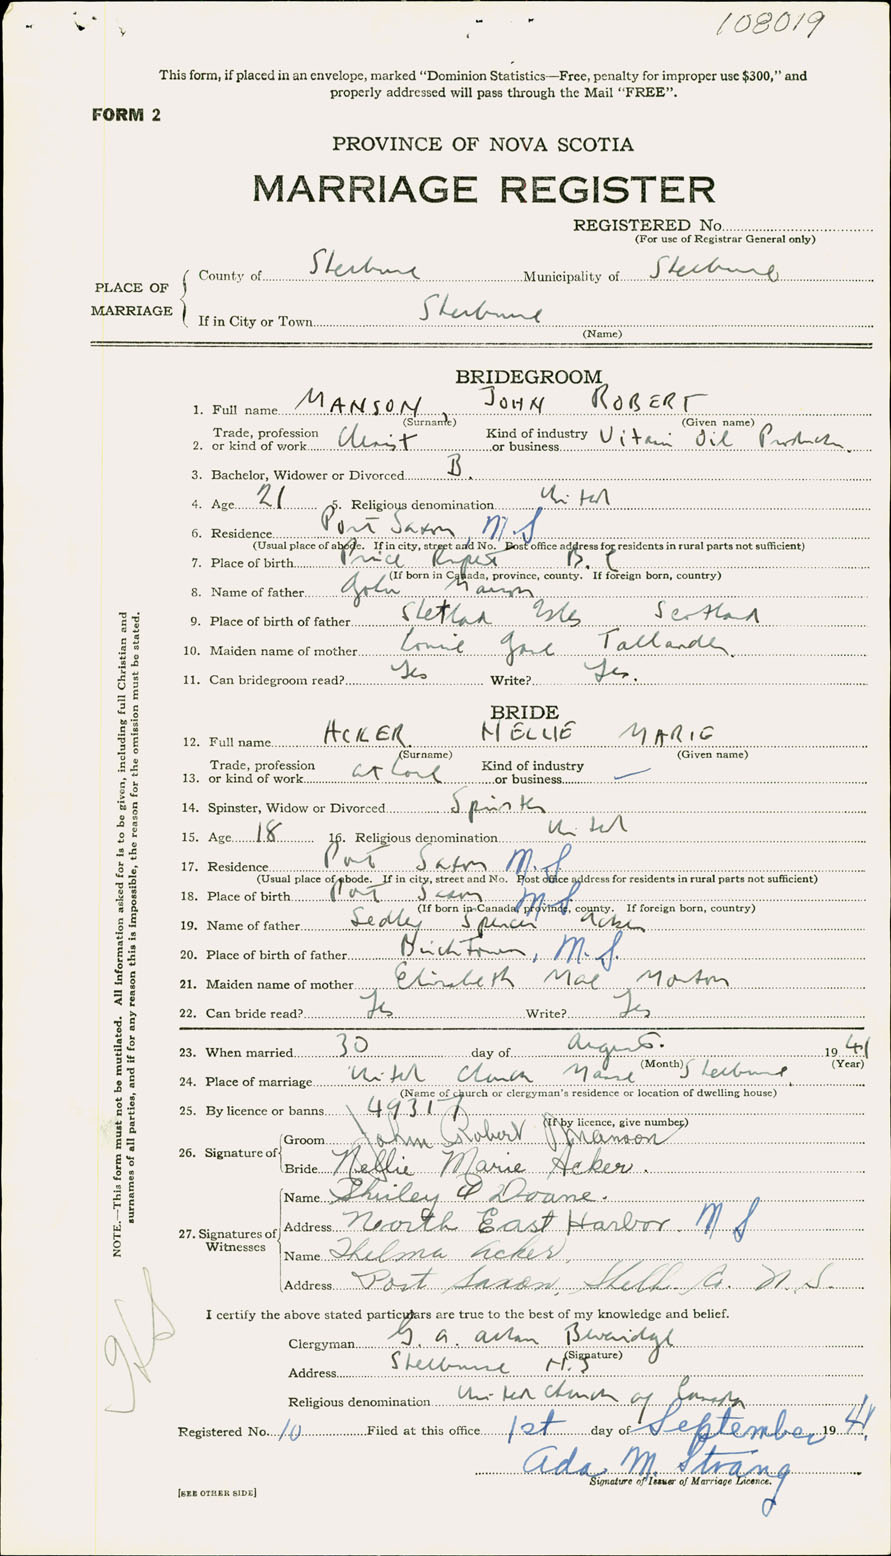 108019
This form, if placed in an envelope, marked "Dominion Statistics—Free, penalty for improper use $300," and
properly addressed will pass through the Mail "FREE".
FORM 2
PROVINCE OF NOVA SCOTIA
MARRIAGE REGISTER
REGISTERED No.
(For use of Registrar General only)
PLACE OF MARRIAGE
County of Shelburne Municipality of Shelburne
If in City or Town Shelburne
(Name)
BRIDEGROOM
1. Full name MANSON JOHN ROBERT
(Surname) (Given name)
2. Trade, profession or kind of work Chemist Kind of industry or business Vitamin Oil Products
3. Bachelor, Widower or Divorced B.
4. Age 21 5. Religious denomination United
6. Residence Port Saxon N.S
(Usual place of abode. If in city, street and No. Post office address for residents in rural parts not sufficient)
7. Place of birth Prince Rupert B.C
(If born in Canada, province, county. If foreign born, country)
8. Name of father John Manson
9. Place of birth of father Shetland Isles Scotland
10. Maiden name of mother Jane
11. Can bridegroom read? Yes Write? Yes.
BRIDE
12. Full name ACKER NELLIE MARIE
(Surname) (Given name)
13. Trade, profession or kind of work at home Kind of industry or business —
14. Spinster, Widow or Divorced Spinster
15. Age 18 16. Religious denomination United
17. Residence Port Saxon N.S
(Usual place of abode. If in city, street and No. Post office address for residents in rural parts not sufficient)
18. Place of birth Port Saxon N.S
(If born in Canada, province, county. If foreign born, country)
19. Name of father Sedley Spencer Acker
20. Place of birth of father Birchtown, N.S.
21. Maiden name of mother Elizabeth Mae Morton
22. Can bride read? Yes Write? Yes
23. When married 30 day of August. 1941
(Month) (Year)
24. Place of marriage United Church Manse Shelburne
(Name of church or clergyman's residence or location of dwelling house)
25. By licence or banns 49317
(If by licence, give number)
26. Signature of
Groom John Robert Manson
Bride Nellie Marie Acker.
27. Signatures of Witnesses
Name Shirley A Doane.
Address North East Harbor. N S
Name Thelma Acker
Address Port Saxon, Shelb. Co. N.S.
I certify the above stated particulars are true to the best of my knowledge and belief.
Clergyman G. A.
(Signature)
Address Shelburne N.S
Religious denomination United Church of Canada
Registered No. 10 Filed at this office 1st day of September 1941.
Ada M. Strang
Signature of Issuer of Marriage Licence.
[SEE OTHER SIDE]
NOTE.—This form must not be mutilated. All information asked for is to be given, including full Christian and
surnames of all parties, and if for any reason this is impossible, the reason for the omission must be stated.